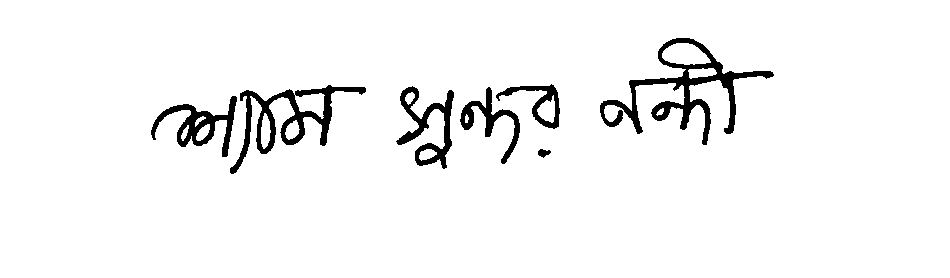 শ্যামসুন্দর নন্দী